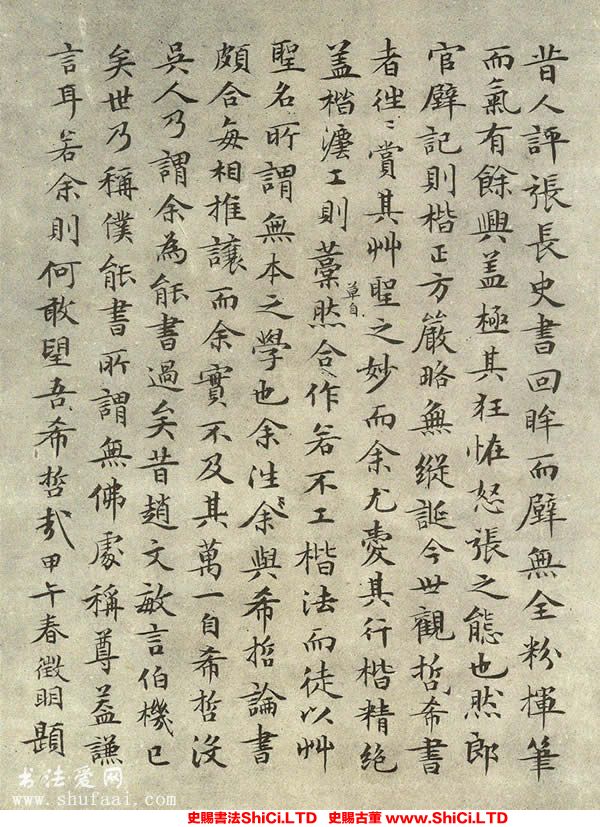 昔人評張長史書回眸而壁無全粉揮筆
而氣有餘興盖極其狂怪怒張之態也然郎
官壁記則楷正方嚴略無縱誕今世觀哲希書
者往〻賞其艸聖之妙而余尤愛其行楷精絕
盖楷灋工則藁草自然合作若不工楷法而徒以艸
聖名所謂無本之學也余往余與希哲論書
頗合每相推讓而余實不及其萬一自希哲沒
吳人乃謂余為能書過矣昔趙文敏言伯機已
矣世乃稱僕能書所謂無佛處稱尊蓋謙
言耳若余則何敢望吾希哲哉甲午春徵明題
书法爱网
www.shufaai.com
史賜書法ShiCi.LTD 史賜古董 www.ShiCi.LTD